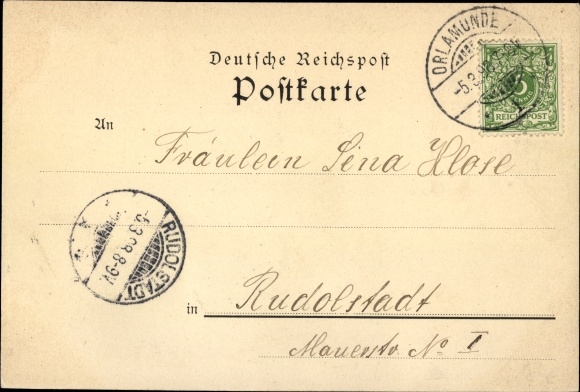 Deutsche Reichspost
Postkarte
ORLAMÜNDE
-5.3.98.7-8N
5
REICHSPOST
An
Fräulein Lina Klose
RUDOLSTADT
-5.3.98.8-9N.
in Rudolstadt
Mauerstr No I